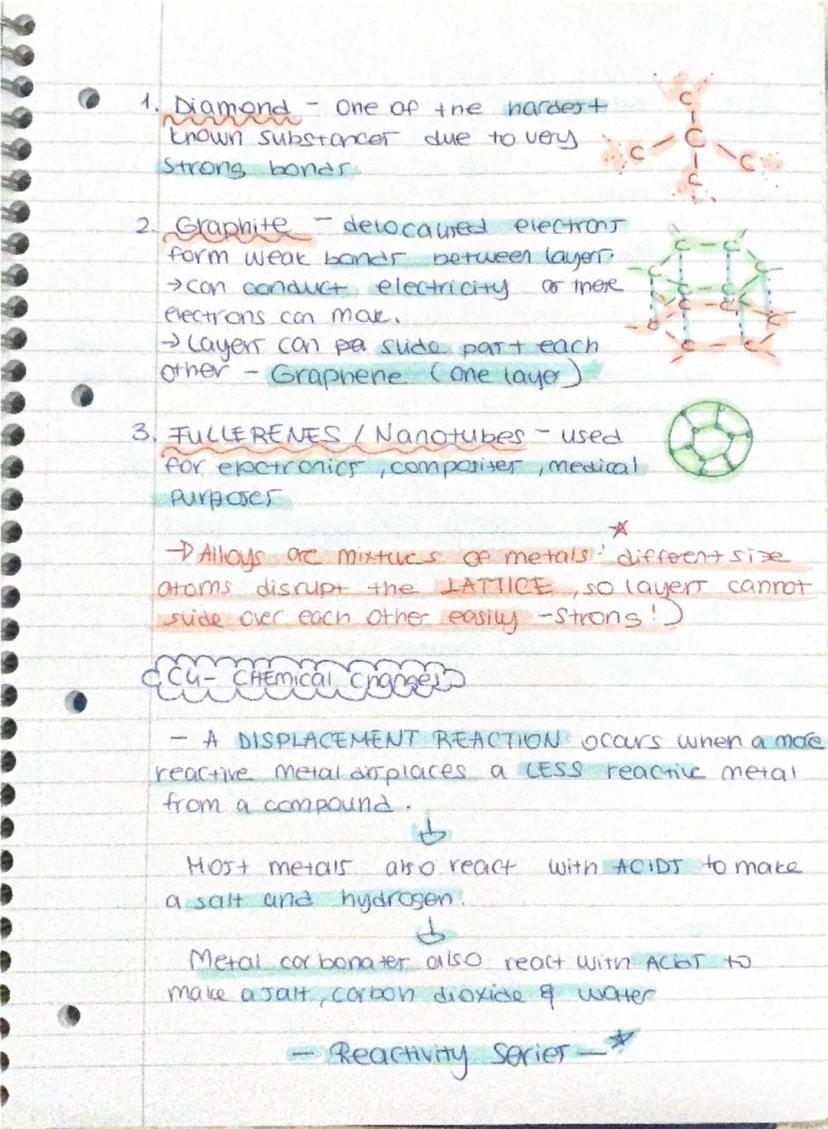 1. Diamond - One of the hardest
known substances due to very
strong bonds
C
C
C
C
C
2. Graphite - delocalised electrons
form weak bonds between layers.
→ can conduct electricity as these
electrons can move.
→ Layers can pa slide past each
other - Graphene (one layer)
3. FULLERENES / Nanotubes - used
for electronics, composites, medical
purposes
→ Alloys are mixtures of metals: different size
atoms disrupt the LATTICE, so layers cannot
slide over each other easily - Strong!)
C4 - CHEmical Changes
- A DISPLACEMENT REACTION occurs when a more
reactive metal displaces a LESS reactive metal
from a compound.
↓
Most metals also react with ACIDS to make
a salt and hydrogen.
↓
Metal carbonates also react with ACIDS to
make a salt, carbon dioxide & water
- Reactivity Series -